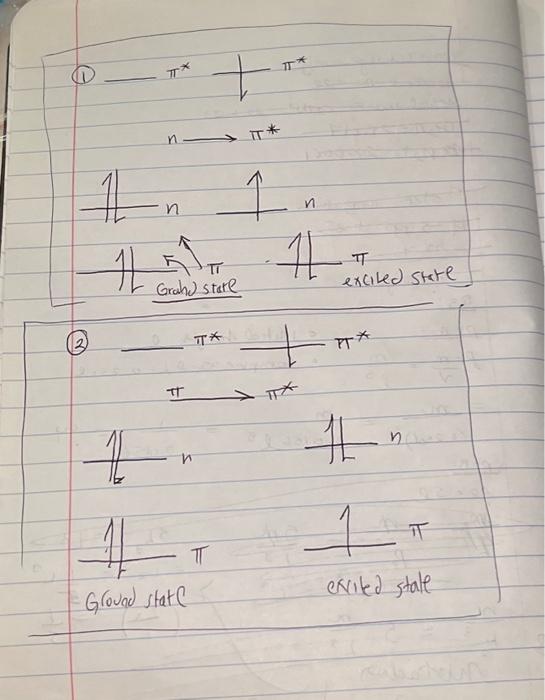 ① π* π*
n → π*
n n
π π
Grahd state excited state
② π* π*
π → π*
n n
π π
Ground state exited state